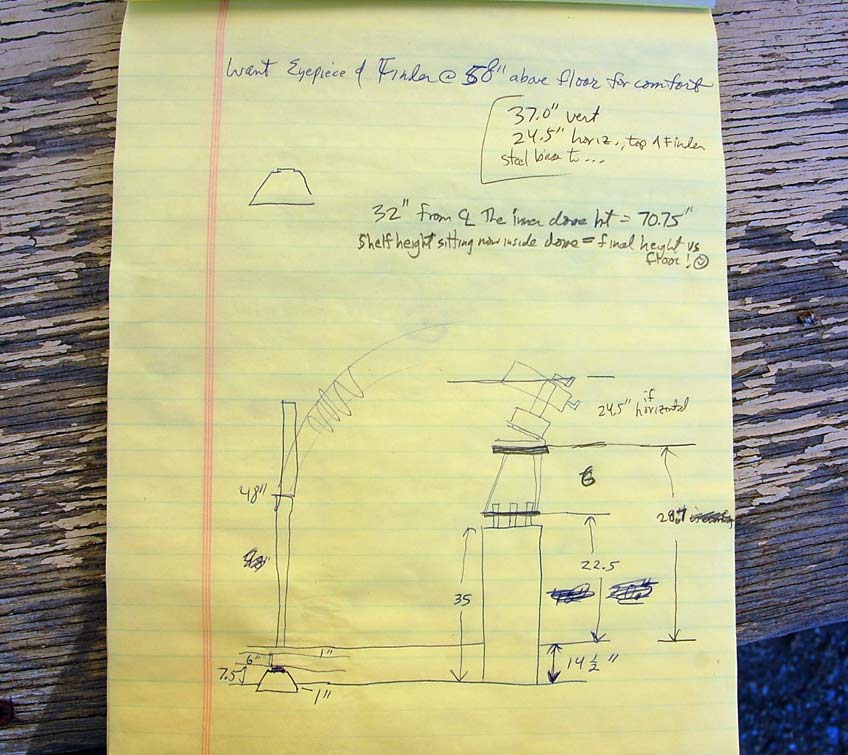 Want Eyepiece & Finder @ 58" above floor for comfort
37.0" vert
24.5" horiz., top of Finder
steel base to...
32" from ℄ The inner dome ht = 70.75"
Shelf height sitting now inside dome = final height vs
floor!
24.5" if
horizontal
48"
6
28.
22.5
35
1"
6"
7.5
14 1/2"
1"